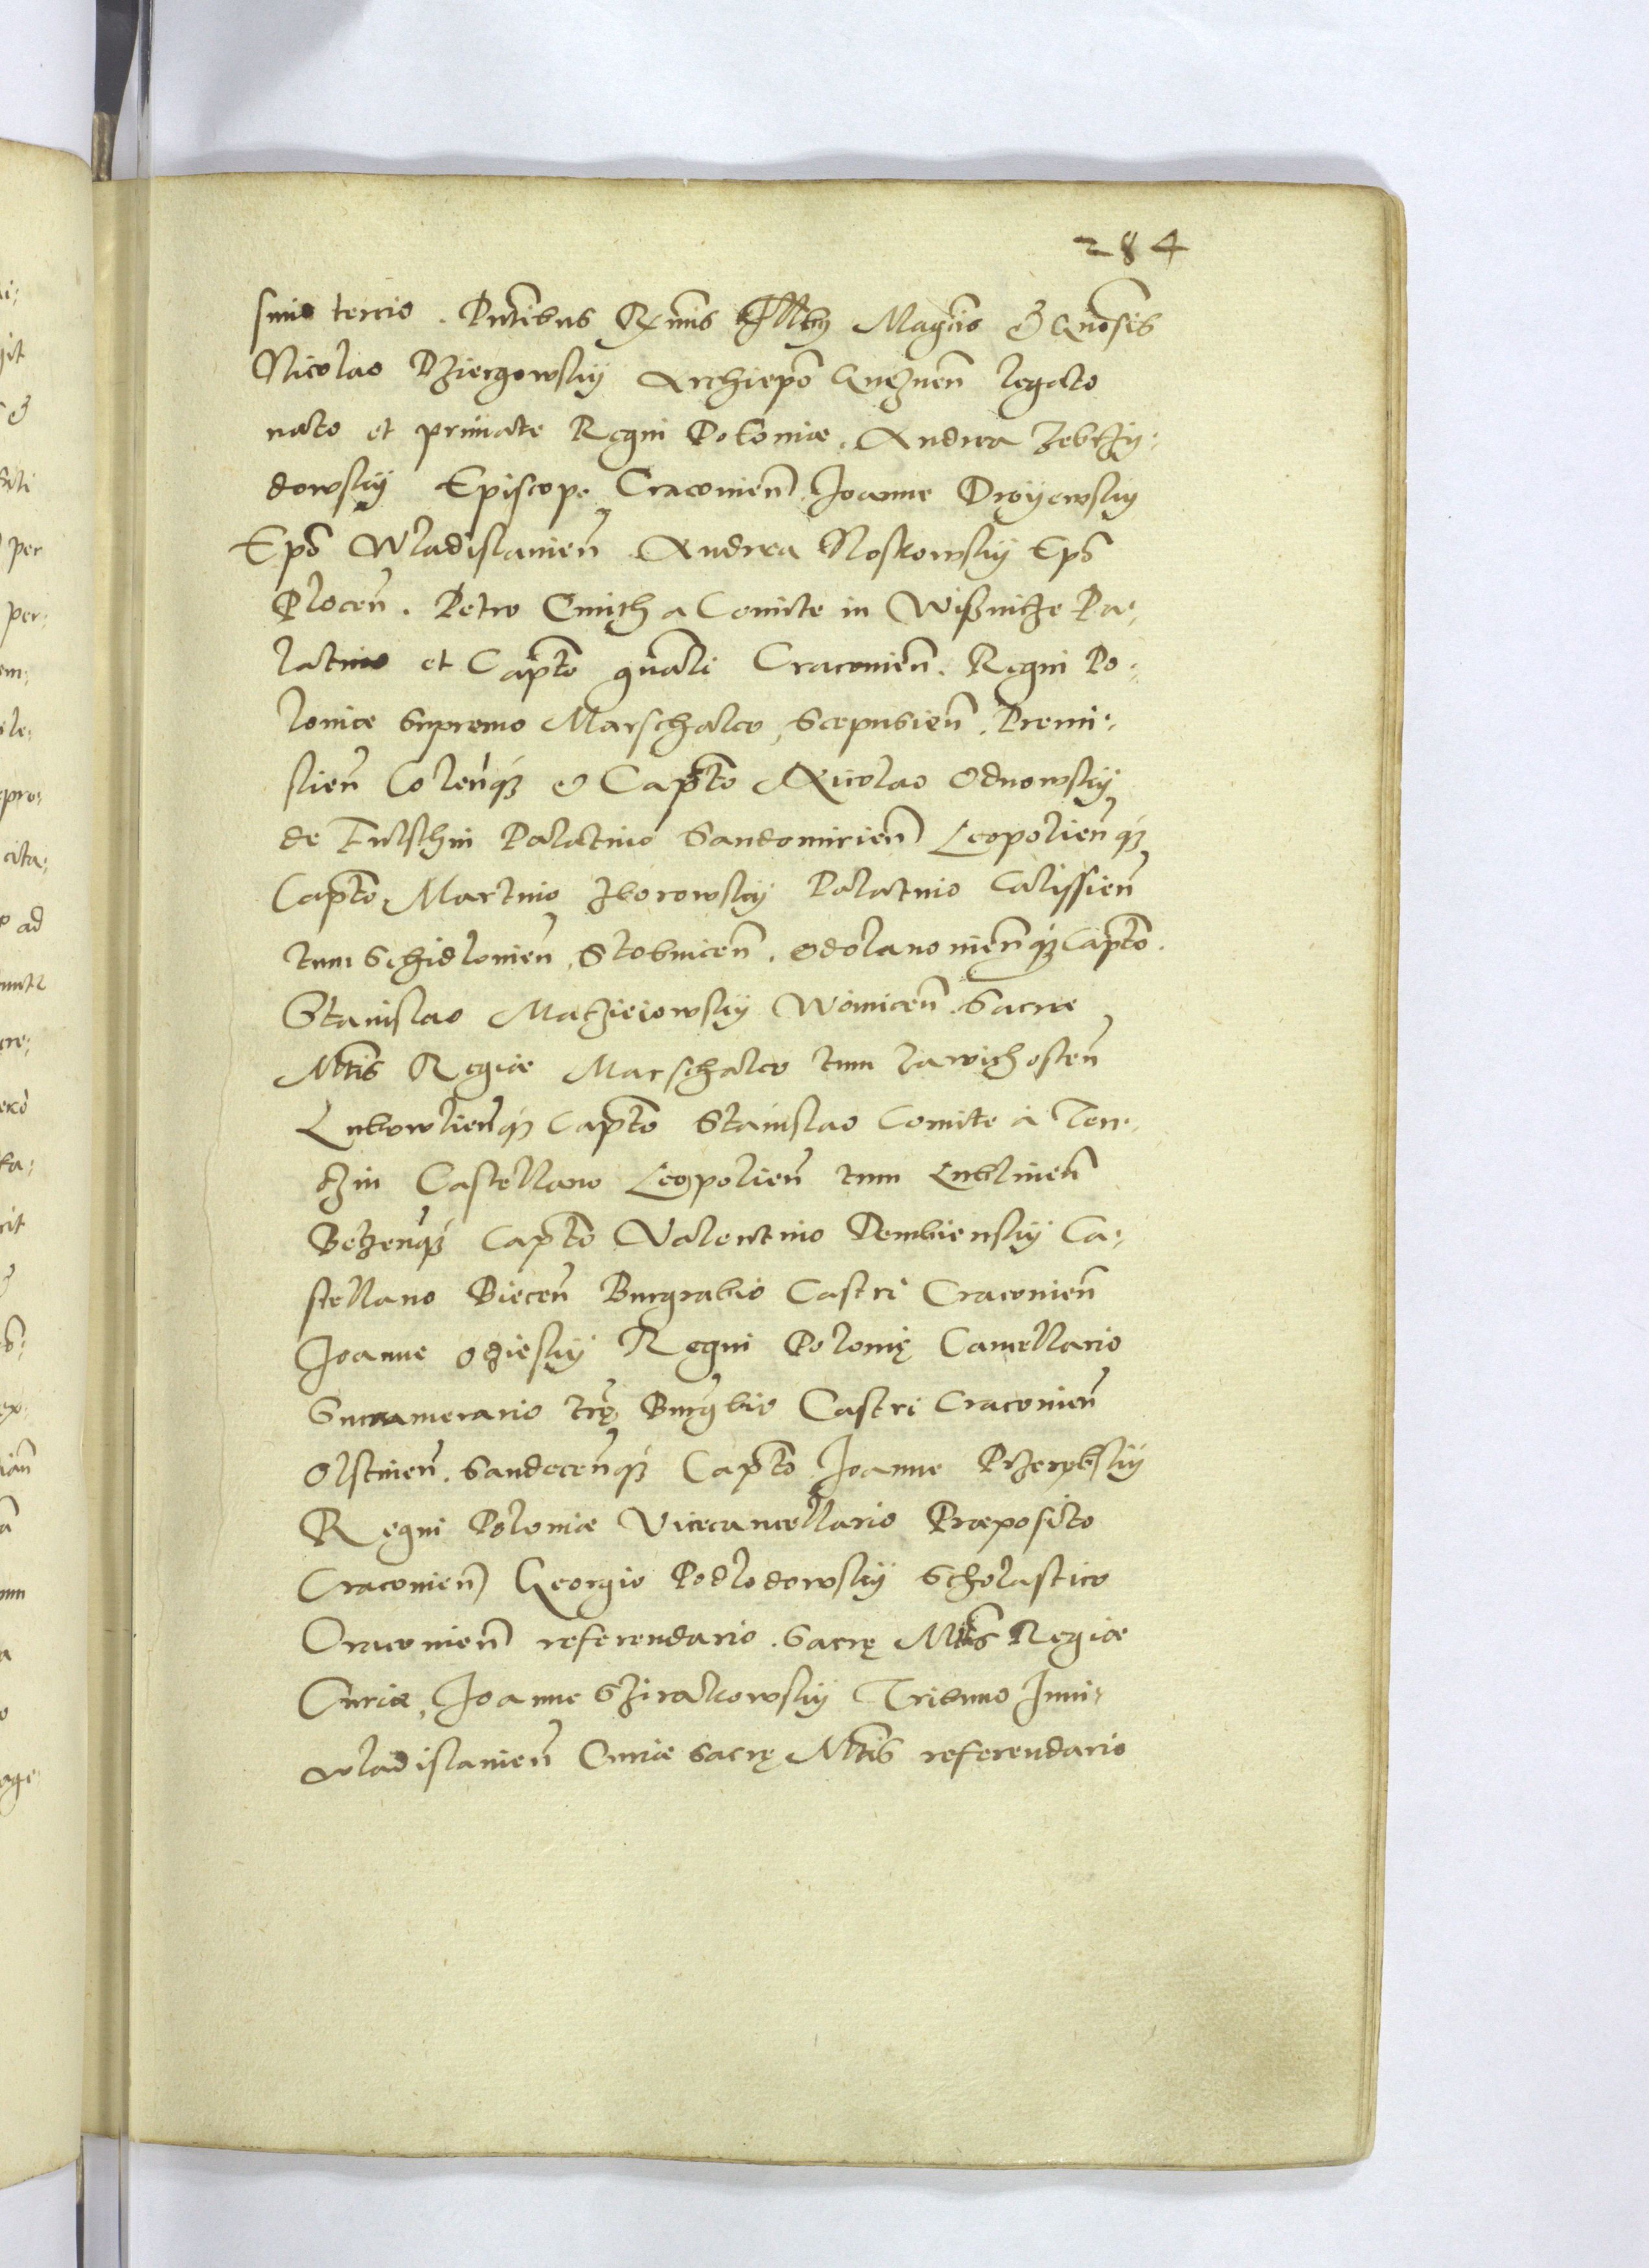 284
simo tercio. Pntibus Rxmis Illtb Magcis & Gnosis
Nicolao Dziergowskij Archiepo Gneznen legato
nato et primate Regni Poloniæ. Andrea Zebrzy:
dowskij Episcopo Cracovien Joanne Droyowskij
Epo Wladislavien Andrea Noskowskij Epo
Plocen. Petro Cmith a Comite in Wisnicze Pa:
latino et Capto gnali Cracovien. Regni Po:
loniæ Supremo Marschalco, Scepusien. Premi:
slien Colenq3 & Capto Nicolao Odnowskij
de Fulschin Palatino Sandomirien Leopolienq3
Capto, Martino Zborowskij Palatino Calissien
tum Schidlovien, Stobnicen. Odolanovienq3 Capto.
Stanislao Maczieiowskij Woinicen. Sacræ
Mtis Regiæ Marschalco tum Zawichosten
Lubowlienq3 Capto Stanislao Comite à Ten:
czin Castellano Leopolien tum Lublinen
Belzenq3 Capto Valentino Dembienskij Ca:
stellano Biecen Burgrabio Castri Cracovien
Joanne Oczieskij Regni Polonię Cancellario
Succamerario trę Burgbio Castri Cracovien
Olstinen. Sandecenq3 Capto Joanne Przerębskij
Regni Poloniæ Vicecancellario Præposito
Cracovien Georgio Podlodowskij Scholastico
Cracovien referendario. Sacrę Mtis Regiæ
Curiæ, Joanne Sierakowskij Tribuno Juni:
wladislavien Curiæ Sacrę Mtis referendario